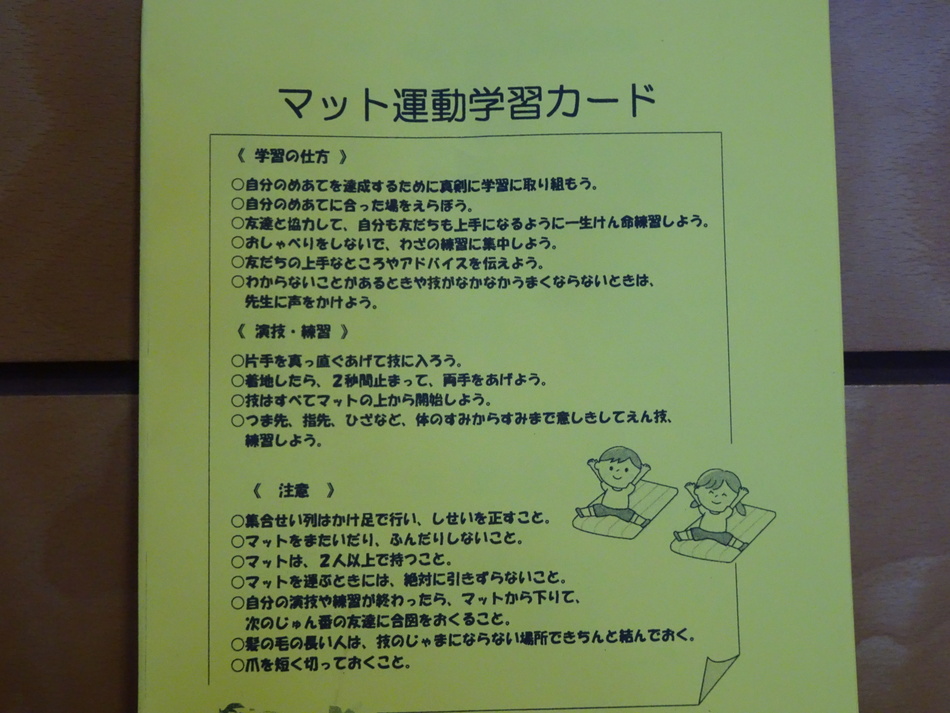 マット運動学習カード
《 学習の仕方 》
○自分のめあてを達成するために真剣に学習に取り組もう。
○自分のめあてに合った場をえらぼう。
○友達と協力して、自分も友だちも上手になるように一生けん命練習しよう。
○おしゃべりをしないで、わざの練習に集中しよう。
○友だちの上手なところやアドバイスを伝えよう。
○わからないことがあるときや技がなかなかうまくならないときは、
先生に声をかけよう。
《 演技・練習 》
○片手を真っ直ぐあげて技に入ろう。
○着地したら、2秒間止まって、両手をあげよう。
○技はすべてマットの上から開始しよう。
○つま先、指先、ひざなど、体のすみからすみまで意しきしてえん技、
練習しよう。
《 注意 》
○集合せい列はかけ足で行い、しせいを正すこと。
○マットをまたいだり、ふんだりしないこと。
○マットは、2人以上で持つこと。
○マットを運ぶときには、絶対に引きずらないこと。
○自分の演技や練習が終わったら、マットから下りて、
次のじゅん番の友達に合図をおくること。
○髪の毛の長い人は、技のじゃまにならない場所できちんと結んでおく。
○爪を短く切っておくこと。